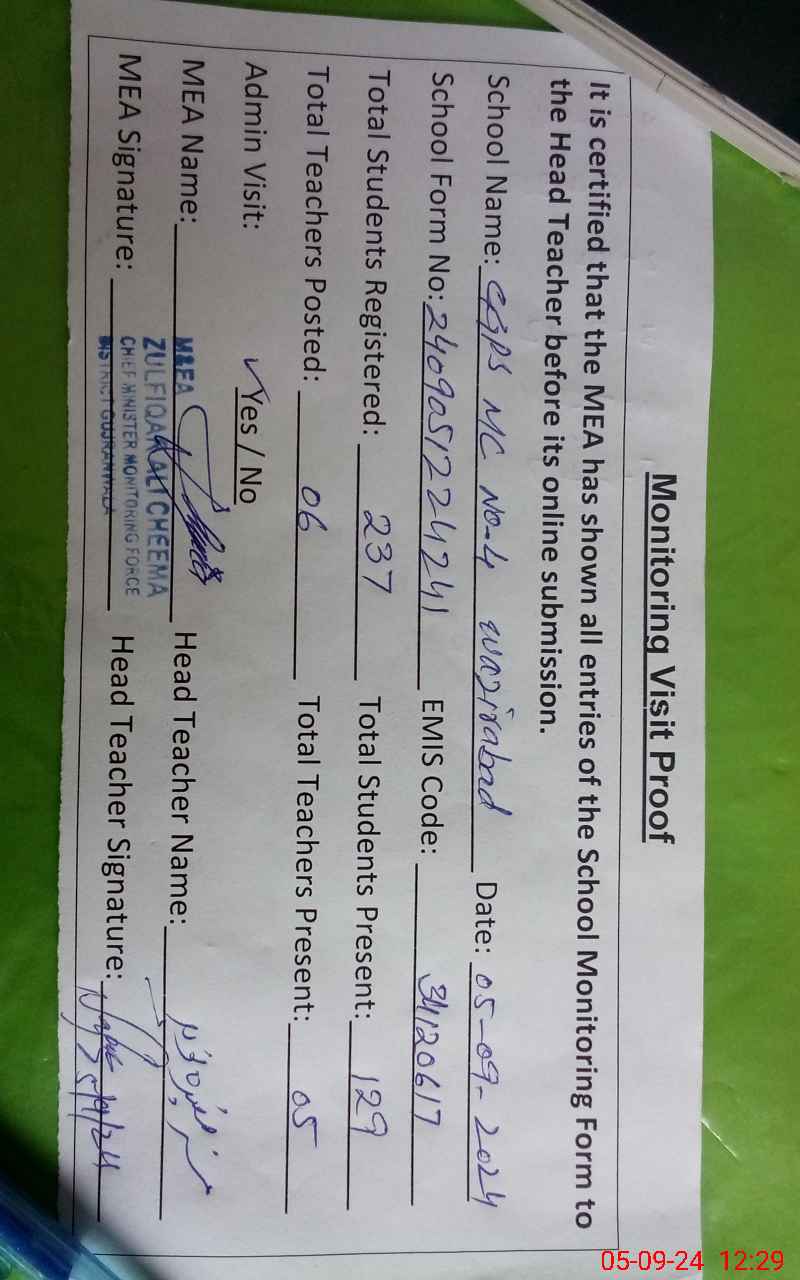 Monitoring Visit Proof
It is certified that the MEA has shown all entries of the School Monitoring Form to
the Head Teacher before its online submission.
School Name: GGPS MC NO-4 wazirabad Date: 05-09-2024
School Form No: 2409051224241 EMIS Code: 34120617
Total Students Registered: 237 Total Students Present: 129
Total Teachers Posted: 06 Total Teachers Present: 05
Admin Visit: ✓Yes / No
MEA Name: M&EA Head Teacher Name:
ZULFIQAR ALI CHEEMA
MEA Signature: CHIEF MINISTER MONITORING FORCE Head Teacher Signature: 5/9/24
DISTRICT GUJRANWALA
05-09-24 12:29